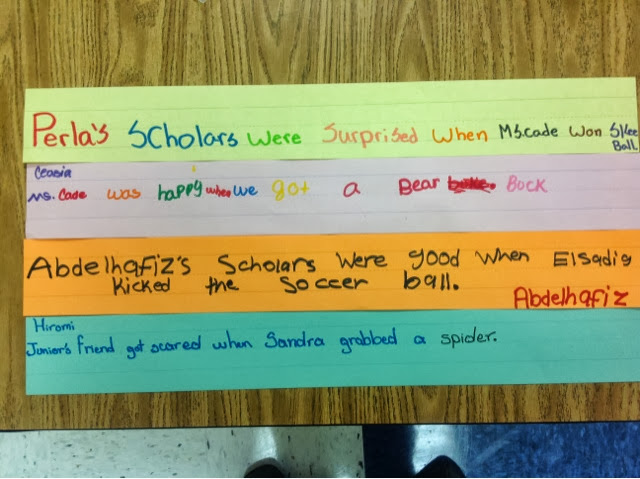 Perla's Scholars Were Surprised When Ms.cade Won Skee
Ball
Ceasia
Ms. Cade was happy when we got a Bear Bock
Abdelhafiz's Scholars Were good When Elsadig
Kicked the Soccer ball.
Abdelhafiz
Hiromi
Junior's friend got scared when Sandra grabbed a spider.